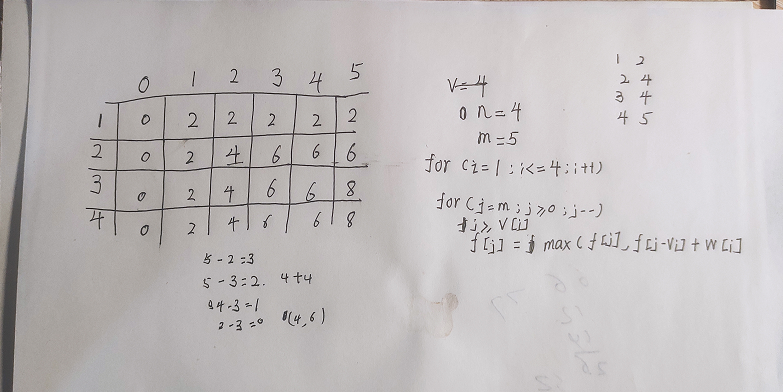 0 1 2 3 4 5
1 0 2 2 2 2 2
2 0 2 4 6 6 6
3 0 2 4 6 6 8
4 0 2 4 6 6 8
5 - 2 = 3
5 - 3 = 2. 4 + 4
4 - 3 = 1
2 - 3 = 0 (4, 6)
V = 4
n = 4
m = 5
1 2
2 4
3 4
4 5
for (i = 1 ; i <= 4 ; i++)
for (j = m ; j ≥ 0 ; j--)
j ≥ V[i]
f[j] = max ( f[j], f[j-Vi] + W[i]